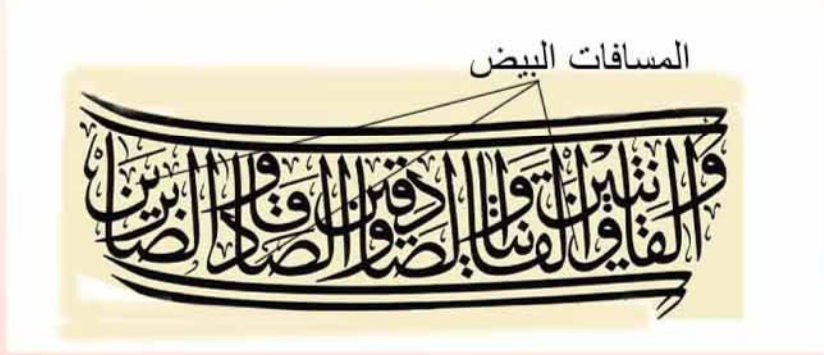 المسافات البيض
والقانتين والقانتات والصادقين والصادقات والصابرين